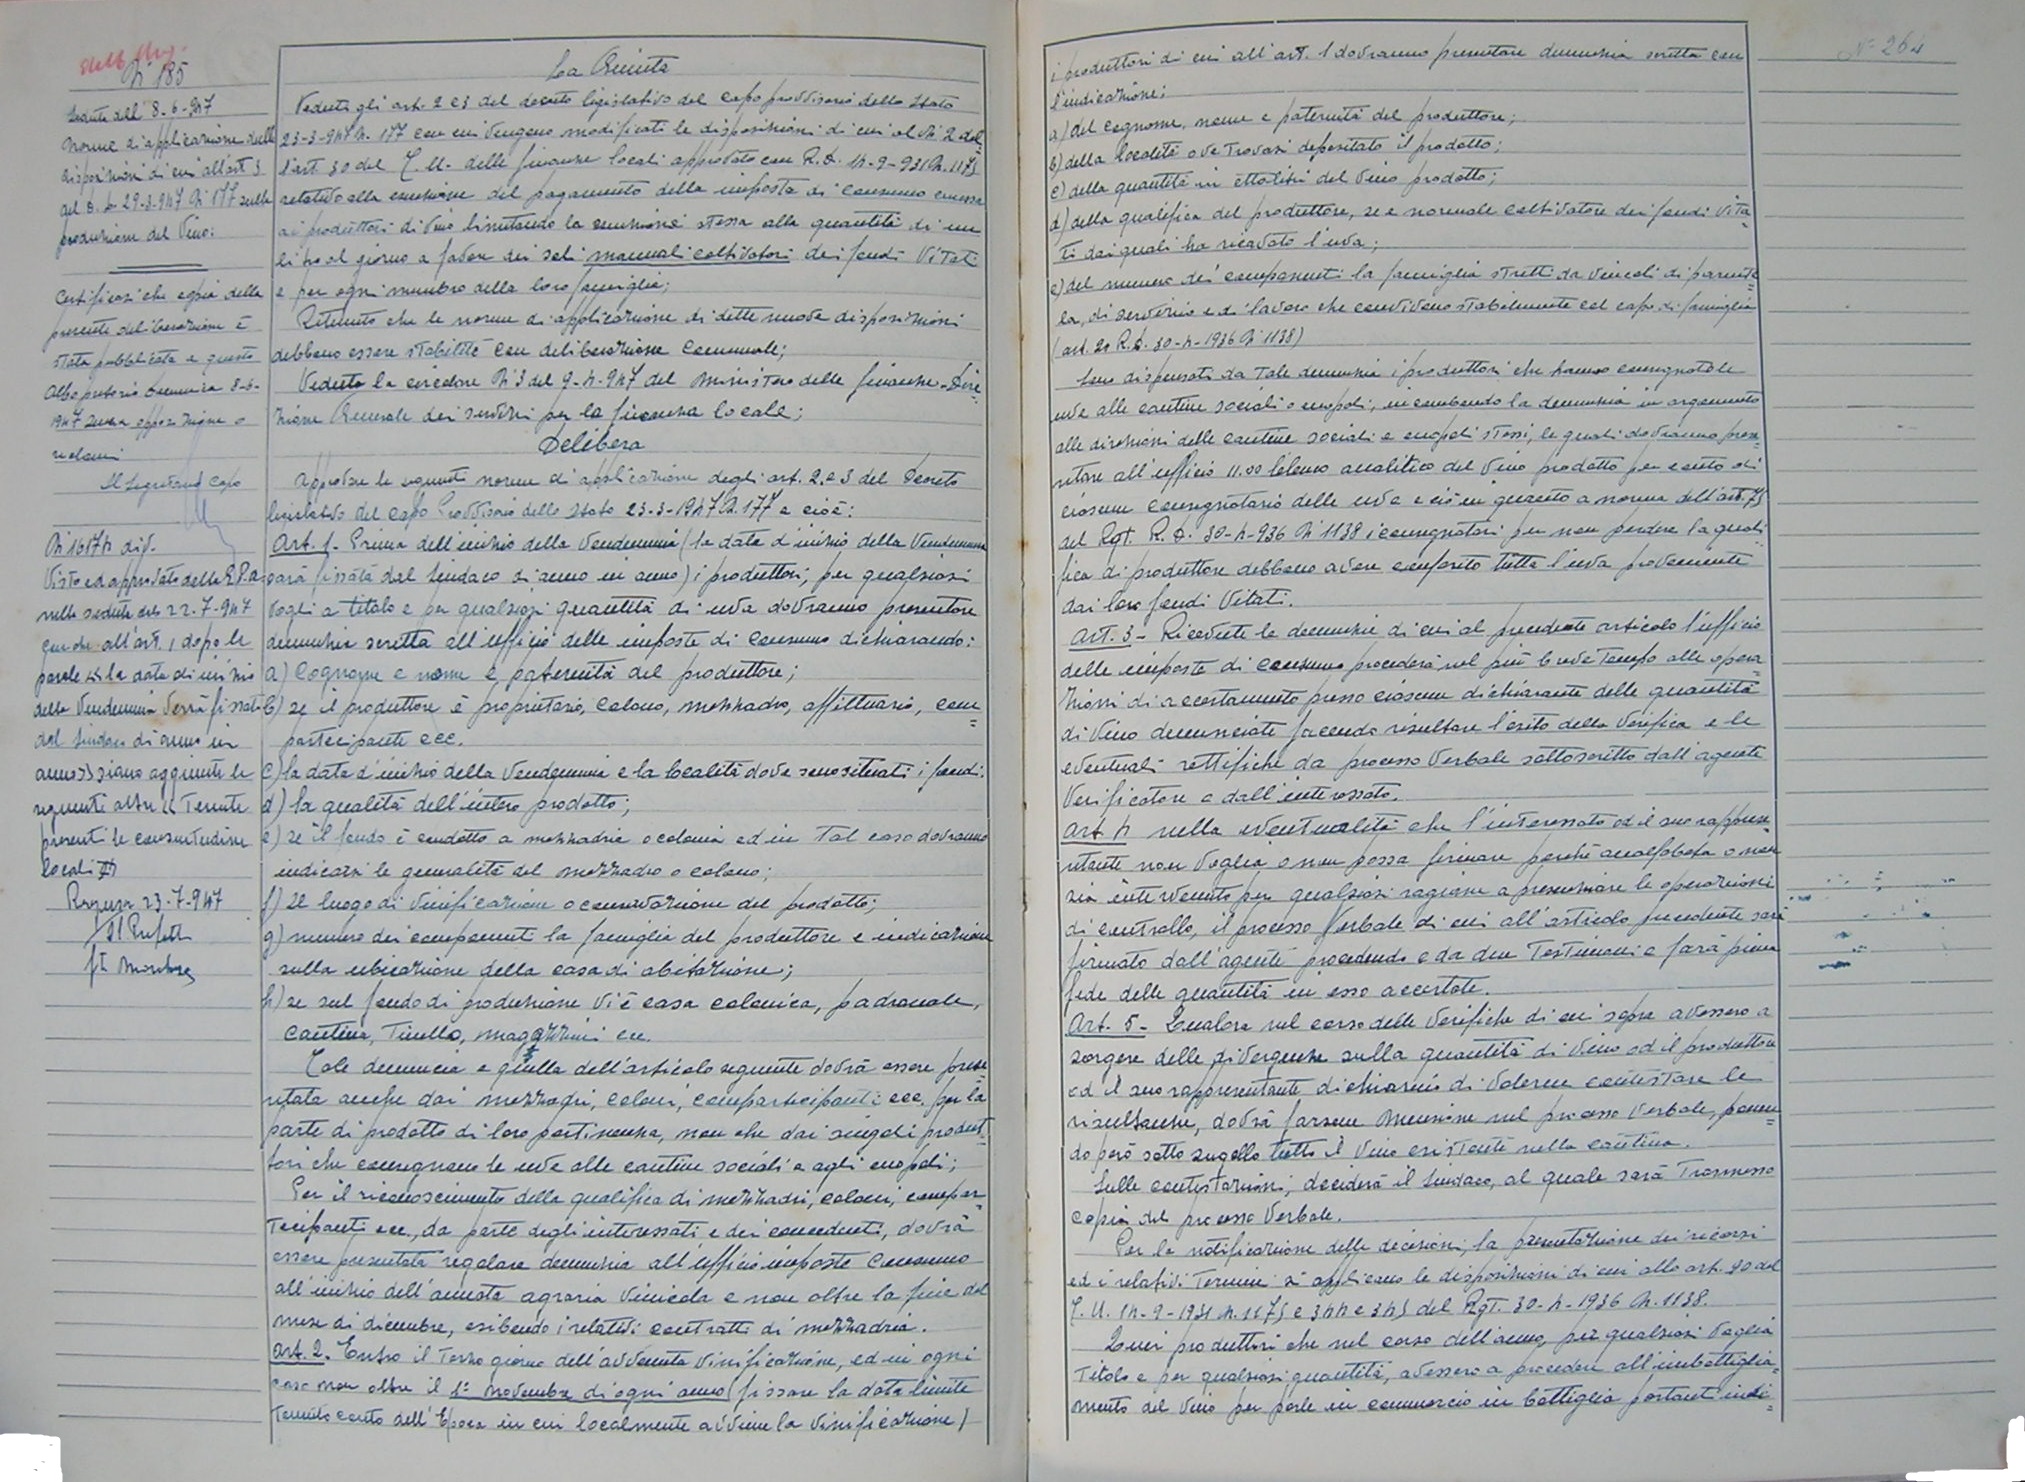 N° 185
Seduta dell' 8-6-947
Norme di applicazione delle
disposizioni di cui all'art. 3
del D. L. 29-3-947 N° 177 sulla
produzione del Vino:
Certificasi che copia della
presente deliberazione è
stata pubblicata a questo
Albo pretorio domenica 8-6-
1947 senza opposizione o
reclami
Il Segretario Capo
N° 16174 div.
Visto ed approvato dalla G.P.A.
nella seduta del 22-7-947
purché all'art. 1 dopo le
parole << la data di inizio
della Vendemmia verrà fissata
dal Sindaco di anno in
anno >> siano aggiunte le
seguenti altre << Tenute
presenti le consuetudini
locali >>
Ragusa 23-7-947
Il Prefetto
La Giunta
Veduti gli art. 2 e 3 del decreto legislativo del capo provvisorio dello Stato
23-3-947 N. 177 con cui vengono modificati le disposizioni di cui al N° 2 del=
l'art 30 del T.U. delle finanze locali approvato con R.D. 14-9-931 N. 1175
relativo alla esenzione del pagamento della imposta di consumo concessa
ai produttori di Vino limitando la esenzione stessa alla quantità di un
litro al giorno a favore dei soli manuali coltivatori dei fondi Vitati
e per ogni membro della loro famiglia;
Ritenuto che le norme di applicazione di dette nuove disposizioni
debbono essere stabilite con deliberazione Comunale;
Veduta la circolare N° 3 del 9-4-947 del Ministero delle finanze - Dire=
zione Generale dei servizi per la finanza locale;
Delibera
Approvare le seguenti norme di applicazione degli art. 2 e 3 del Decreto
legislativo del Capo Provvisorio dello Stato 23-3-1947 N. 177 e cioè:
Art. 1- Prima dell'inizio della Vendemmia (la data d'inizio della Vendemmia
sarà fissata dal Sindaco di anno in anno) i produttori, per qualsiasi
vogli a titolo e per qualsiasi quantità di uva dovranno presentare
denunzia scritta all'ufficio delle imposte di Consumo dichiarando:
a) Cognome e nome e paternità del produttore;
b) se il produttore è proprietario, Colono, mezzadro, affittuario, com=
partecipante ecc.
c) la data d'inizio della Vendemmia e la località dove sono situati i fondi.
d) la qualità dell'intero prodotto;
e) se il fondo è condotto a mezzadria o colonia ed in tal caso dovranno
indicarsi le generalità del mezzadro o colono;
f) Il luogo di Vinificazione o conservazione del prodotto;
g) numero dei componenti la famiglia del produttore e indicazione
sulla ubicazione della casa di abitazione;
h) se sul fondo di produzione Vi è casa colonica, padronale,
Cantina, Tinello, magazzini ecc.
Tale denuncia e quella dell'articolo seguente dovrà essere prese=
ntata anche dai mezzadri, Coloni, Compartecipanti ecc. per la
parte di prodotto di loro pertinenza, non che dai singoli produt=
tori che consegnano le uve alle cantine sociali e agli enopoli;
Per il riconoscimento della qualifica di mezzadri, coloni, compar=
tecipanti ecc., da parte degli interessati e dei concedenti, dovrà
essere presentata regolare denunzia all'ufficio imposte Consumo
all'inizio dell'annata agraria Vinicola e non oltre la fine del
mese di dicembre, esibendo i relativi contratti di mezzadria.
Art. 2. Entro il terzo giorno dell'avvenuta Vinificazione, ed in ogni
caso non oltre il 1° Novembre di ogni anno (fissare la data limite
Tenuto conto dell'Epoca in cui localmente avviene la Vinificazione)
N° 264
i produttori di cui all'art. 1 dovranno presentare denunzia scritta con
l'indicazione:
a) del cognome, nome e paternità del produttore;
b) della località ove trovasi depositato il prodotto;
c) della quantità in ettolitri del Vino prodotto;
d) della qualifica del produttore, se e normale coltivatore dei fondi Vita=
ti dai quali ha ricavato l'uva;
e) del numero dei componenti la famiglia stretti da vincoli di parente=
la, di servizio e di lavoro che convivono stabilmente col capo di famiglia
(art. 21 R.D. 30-4-1936 N° 1138)
Sono dispensati da tale denunzia i produttori che hanno consegnato le
uve alle cantine sociali o enopoli, incombendo la denunzia in argomento
alle direzioni delle cantine sociali e enopoli stessi, le quali dovranno prese=
ntare all'ufficio II.CC l'elenco analitico del Vino prodotto per conto di
ciascun consegnatario delle uve e ciò in quanto a norma dell'art. 75
del Rgt. R.D. 30-4-936 N° 1138 i consegnatari per non perdere la quali=
fica di produttore debbono avere conferito tutta l'uva proveniente
dai loro fondi Vitati.
Art. 3- Ricevute le denunzie di cui al precedente articolo l'ufficio
delle imposte di consumo procederà nel più breve tempo alle opera=
zioni di accertamento presso ciascun dichiarante delle quantità
di Vino denunciate facendo risultare l'esito della Verifica e le
eventuali rettifiche da processo Verbale sottoscritto dall'agente
Verificatore e dall'interessato.
Art. 4 nella eventualità che l'interessato od il suo rappre=
sentante non voglia o non possa firmare perché analfabeta o non
sia intervenuto per qualsiasi ragione a presenziare le operazioni
di controllo, il processo Verbale di cui all'articolo precedente sarà
firmato dall'agente procedendo e da due Testimoni e farà piena
fede delle quantità in esso accertate.
Art. 5- Qualora nel corso delle Verifiche di cui sopra avessero a
sorgere delle divergenze sulla quantità di Vino od il produttore
od il suo rappresentante dichiarino di volerne contestare le
risultanze, dovrà farsene menzione nel processo Verbale, ponen=
do però sotto sugello tutto il Vino esistente nella cantina.
Sulle contestazioni, deciderà il Sindaco, al quale sarà Trasmesso
copia del processo Verbale.
Per la notificazione delle decisioni, la presentazione dei ricorsi
ed i relativi Termini si applicano le disposizioni di cui allo art. 90 del
T.U. 14-9-1931 N. 1175 e 344 e 345 del Rgt. 30-4-1936 N. 1138.
Quei produttori che nel corso dell'anno, per qualsiasi Voglia
Titolo e per qualsiasi quantità, avessero a procedere all'imbottiglia=
mento del Vino per porlo in commercio in bottiglia portanti indi=